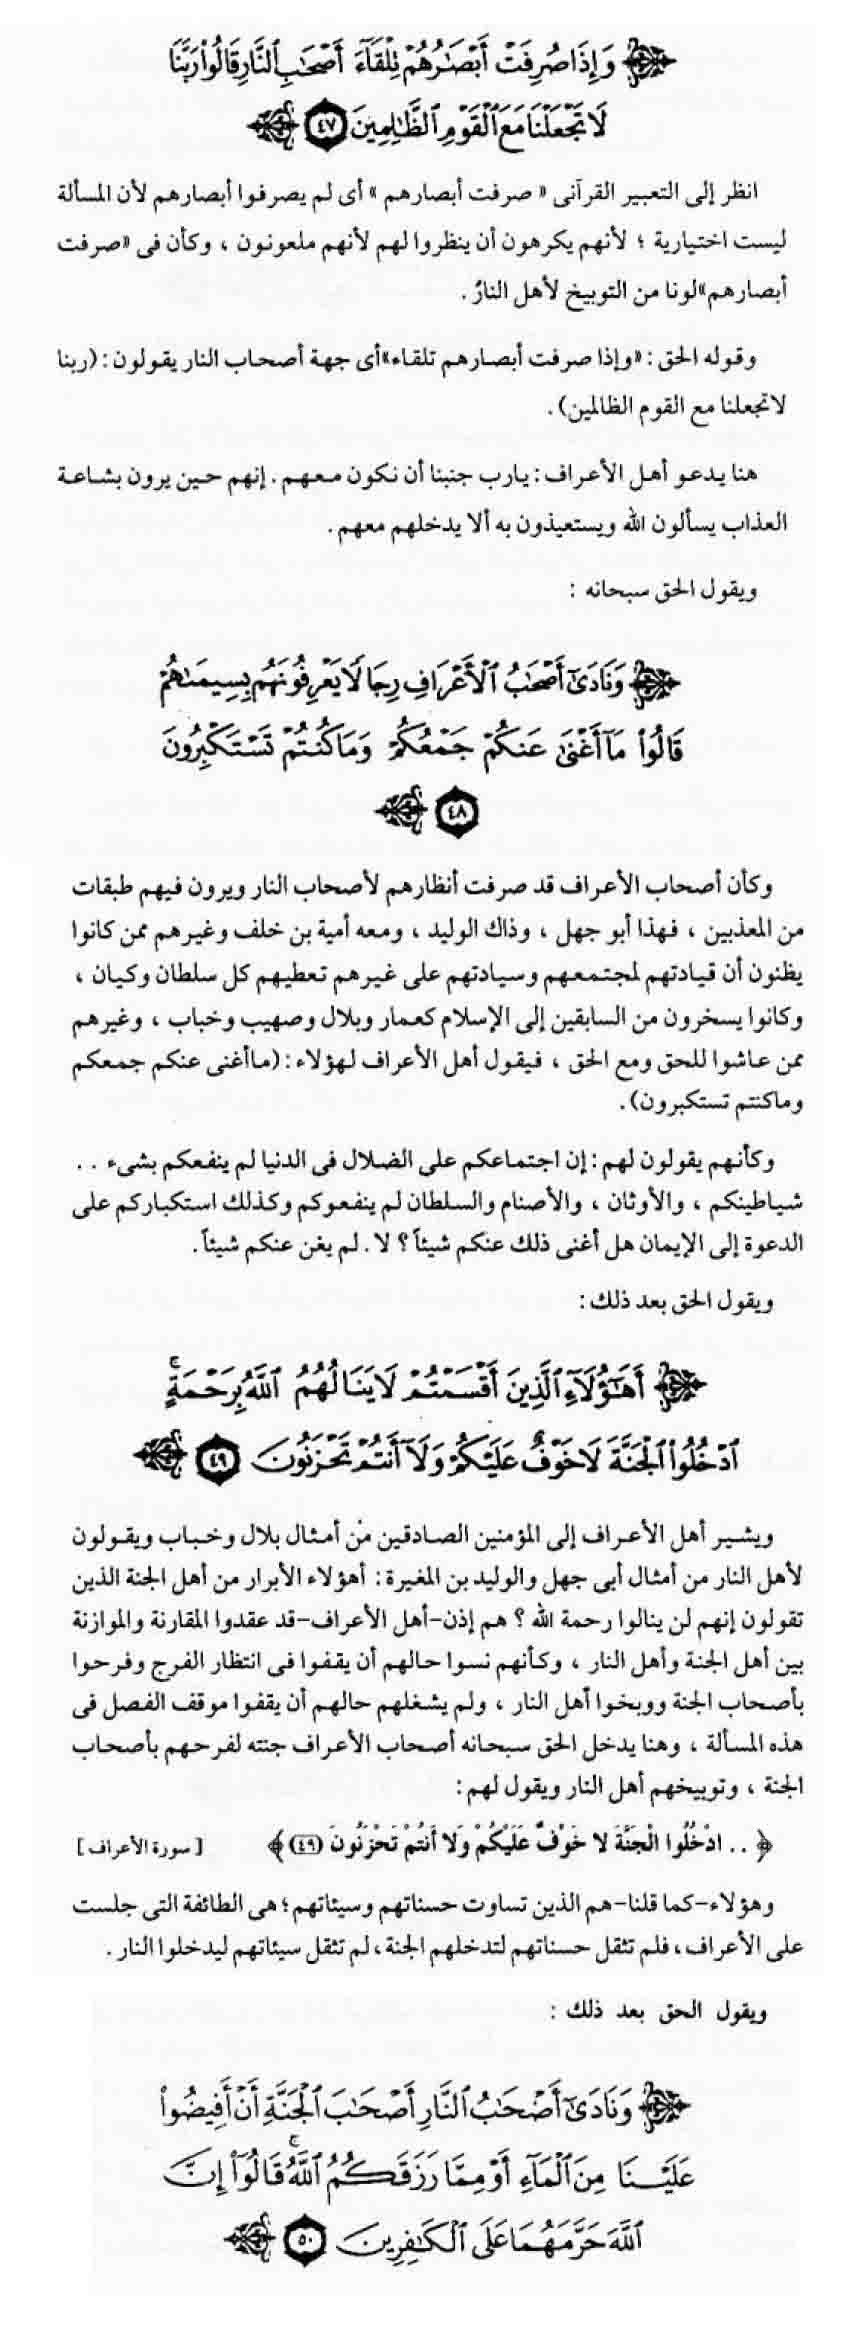 وَإِذَا صُرِفَتْ أَبْصَارُهُمْ تِلْقَاءَ أَصْحَابِ النَّارِ قَالُوا رَبَّنَا
لَا تَجْعَلْنَا مَعَ الْقَوْمِ الظَّالِمِينَ ٤٧
انظر إلى التعبير القرآنى « صرفت أبصارهم » أى لم يصرفوا أبصارهم لأن المسألة
ليست اختيارية ؛ لأنهم يكرهون أن ينظروا لهم لأنهم ملعونون ، وكأن فى «صرفت
أبصارهم»لونا من التوبيخ لأهل النار .
وقوله الحق : «وإذا صرفت أبصارهم تلقاء»أى جهة أصحاب النار يقولون : (ربنا
لا تجعلنا مع القوم الظالمين) .
هنا يدعو أهل الأعراف : يارب جنبنا أن نكون معهم . إنهم حين يرون بشاعة
العذاب يسألون الله ويستعيذون به ألا يدخلهم معهم .
ويقول الحق سبحانه :
وَنَادَىٰ أَصْحَابُ الْأَعْرَافِ رِجَالًا يَعْرِفُونَهُم بِسِيمَاهُمْ
قَالُوا مَا أَغْنَىٰ عَنكُمْ جَمْعُكُمْ وَمَا كُنتُمْ تَسْتَكْبِرُونَ
٤٨
وكأن أصحاب الأعراف قد صرفت أنظارهم لأصحاب النار ويرون فيهم طبقات
من المعذبين ، فهذا أبو جهل ، وذاك الوليد ، ومعه أمية بن خلف وغيرهم ممن كانوا
يظنون أن قيادتهم لمجتمعهم وسيادتهم على غيرهم تعطيهم كل سلطان وكيان ،
وكانوا يسخرون من السابقين إلى الإسلام كعمار وبلال وصهيب وخباب ، وغيرهم
ممن عاشوا للحق ومع الحق ، فيقول أهل الأعراف لهؤلاء : (ما أغنى عنكم جمعكم
وماكنتم تستكبرون) .
وكأنهم يقولون لهم : إن اجتماعكم على الضلال فى الدنيا لم ينفعكم بشىء . .
شياطينكم ، والأوثان ، والأصنام والسلطان لم ينفعوكم وكذلك استكباركم على
الدعوة إلى الإيمان هل أغنى ذلك عنكم شيئاً ؟ لا . لم يغن عنكم شيئاً .
ويقول الحق بعد ذلك :
أَهَٰؤُلَاءِ الَّذِينَ أَقْسَمْتُمْ لَا يَنَالُهُمُ اللَّهُ بِرَحْمَةٍ ۚ
ادْخُلُوا الْجَنَّةَ لَا خَوْفٌ عَلَيْكُمْ وَلَا أَنتُمْ تَحْزَنُونَ ٤٩
ويشير أهل الأعراف إلى المؤمنين الصادقين من أمثال بلال وخباب ويقولون
لأهل النار من أمثال أبى جهل والوليد بن المغيرة : أهؤلاء الأبرار من أهل الجنة الذين
تقولون إنهم لن ينالوا رحمة الله ؟ هم إذن-أهل الأعراف-قد عقدوا المقارنة والموازنة
بين أهل الجنة وأهل النار ، وكأنهم نسوا حالهم أن يقفوا فى انتظار الفرج وفرحوا
بأصحاب الجنة ووبخوا أهل النار ، ولم يشغلهم حالهم أن يقفوا موقف الفصل فى
هذه المسألة ، وهنا يدخل الحق سبحانه أصحاب الأعراف جنته لفرحهم بأصحاب
الجنة ، وتوبيخهم أهل النار ويقول لهم :
﴿ . . ادْخُلُوا الْجَنَّةَ لا خَوْفٌ عَلَيْكُمْ وَلا أَنتُمْ تَحْزَنُونَ (٤٩) ﴾ [ سورة الأعراف ]
وهؤلاء-كما قلنا-هم الذين تساوت حسناتهم وسيئاتهم ؛ هى الطائفة التى جلست
على الأعراف ، فلم تثقل حسناتهم لتدخلهم الجنة ، لم تثقل سيئاتهم ليدخلوا النار .
ويقول الحق بعد ذلك :
وَنَادَىٰ أَصْحَابُ النَّارِ أَصْحَابَ الْجَنَّةِ أَنْ أَفِيضُوا
عَلَيْنَا مِنَ الْمَاءِ أَوْ مِمَّا رَزَقَكُمُ اللَّهُ ۚ قَالُوا إِنَّ
اللَّهَ حَرَّمَهُمَا عَلَى الْكَافِرِينَ ٥٠